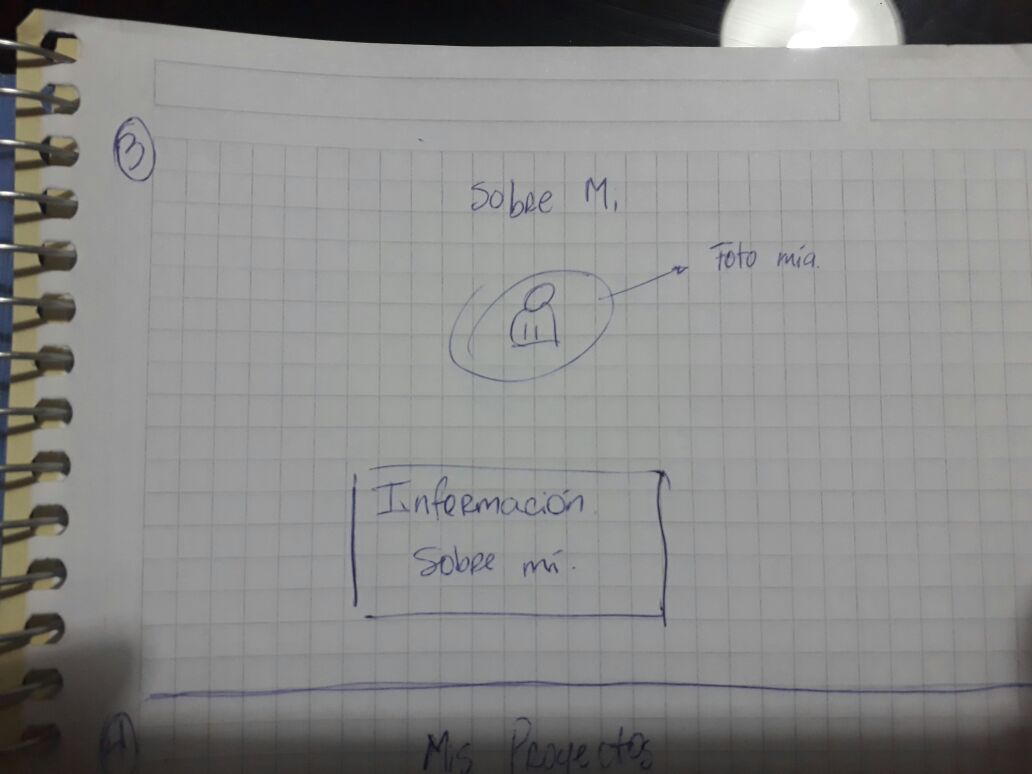 3
Sobre Mi
Foto mía.
Información
Sobre mí.
4
Mis Proyectos